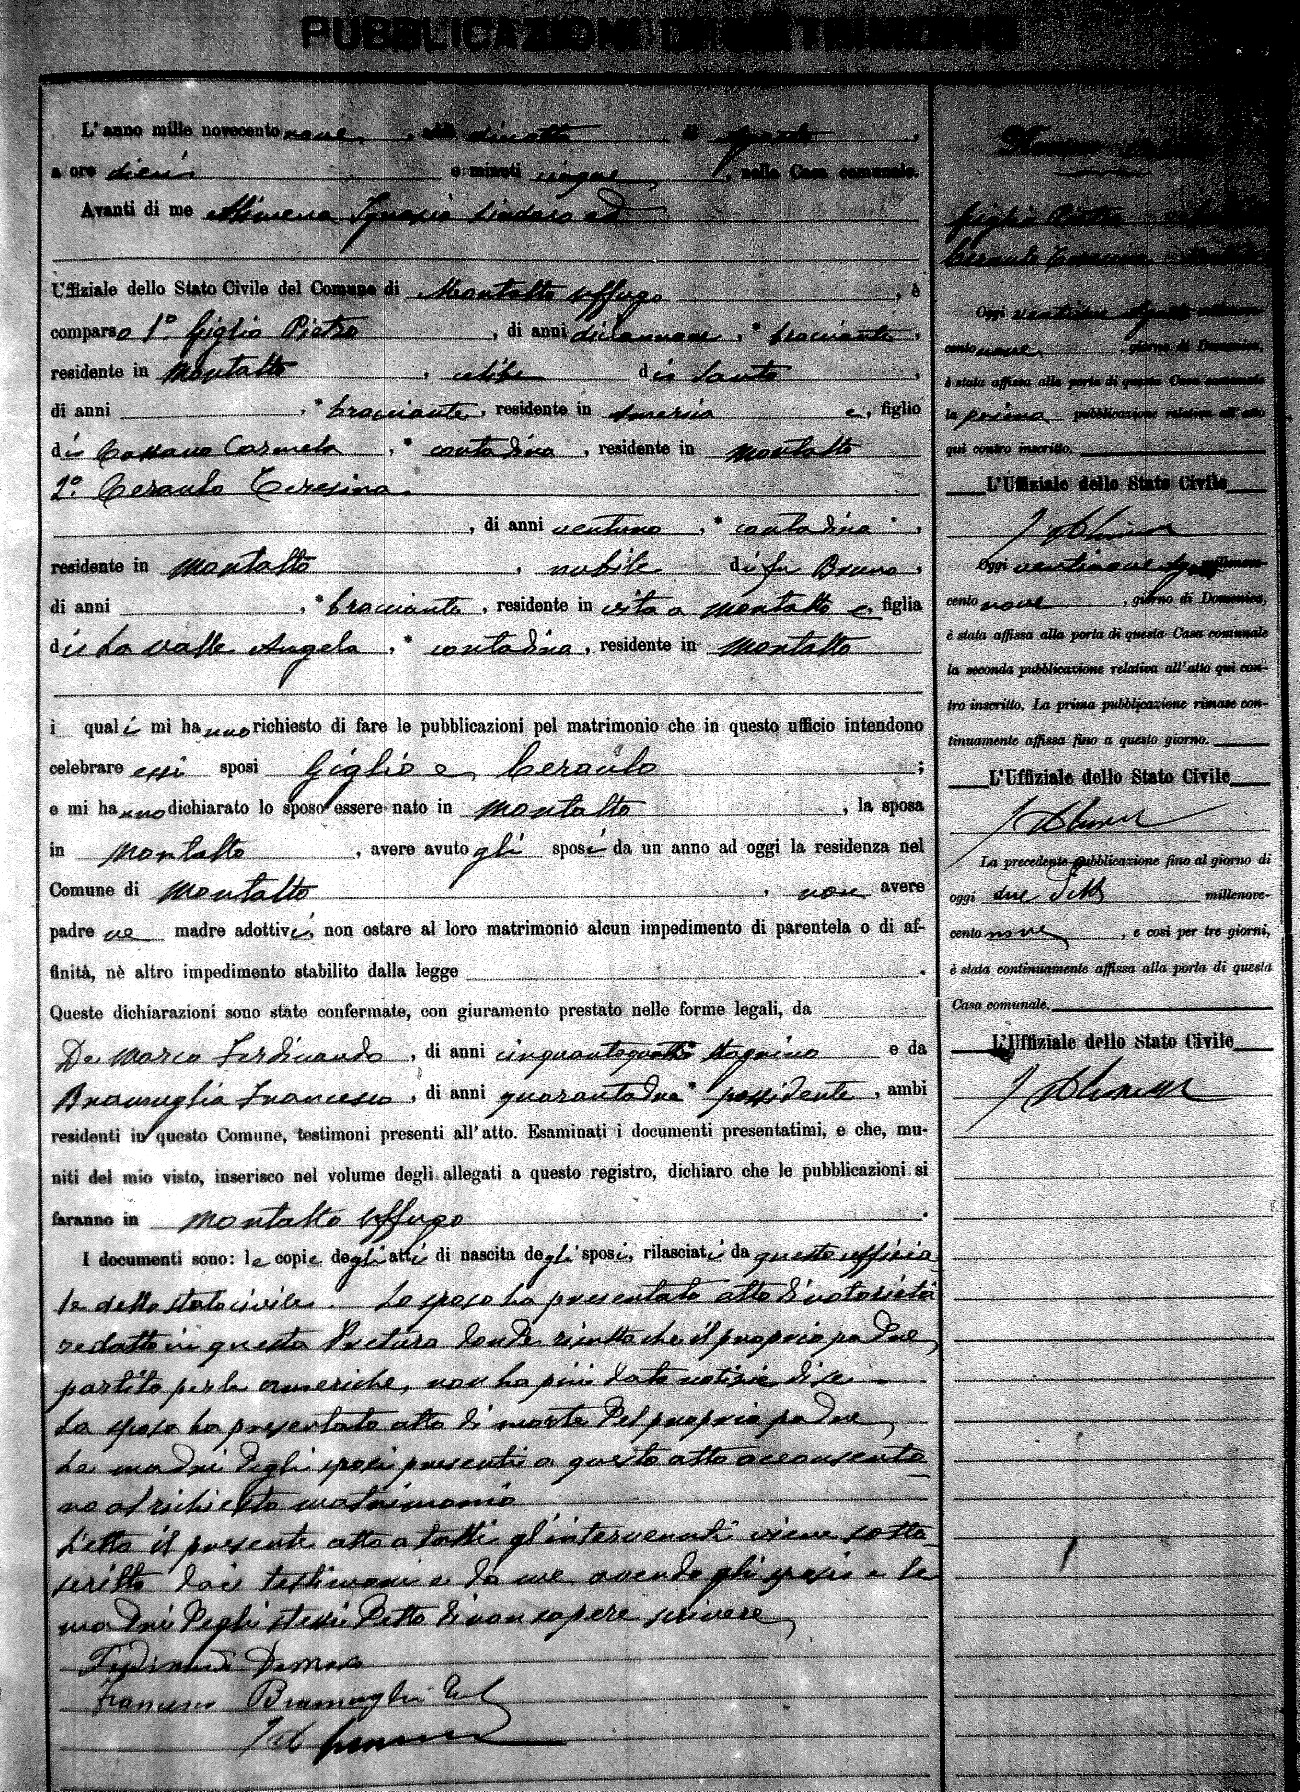 PUBBLICAZIONI DI MATRIMONIO
L'anno mille novecento nove, addì diciotto di Agosto,
a ore dieci e minuti cinque, nella Casa comunale.
Avanti di me Alimena Ignazio Sindaco ed
Uffiziale dello Stato Civile del Comune di Montalto Uffugo, è
comparso 1° Giglio Pietro, di anni diciannove, * bracciante,
residente in Montalto, celibe di Santo,
di anni , * bracciante, residente in America e, figlio
di Cassano Carmela, * contadina, residente in Montalto
2° Ceraulo Teresina
, di anni ventuno, * contadina *,
residente in Montalto, nubile di fu Bruno,
di anni , * bracciante, residente in vita a Montalto e, figlia
di La Valle Angela, * contadina, residente in Montalto
i quali mi hanno richiesto di fare le pubblicazioni pel matrimonio che in questo ufficio intendono
celebrare essi sposi Giglio e Ceraulo ;
e mi hanno dichiarato lo sposo essere nato in Montalto, la sposa
in Montalto, avere avuto gli sposi da un anno ad oggi la residenza nel
Comune di Montalto, non avere
padre ne madre adottivi, non ostare al loro matrimonio alcun impedimento di parentela o di af-
finità, nè altro impedimento stabilito dalla legge .
Queste dichiarazioni sono state confermate, con giuramento prestato nelle forme legali, da
De Marco Ferdinando, di anni cinquantaquattro stagnino e da
Bramuglia Francesco, di anni quarantadue * possidente, ambi
residenti in questo Comune, testimoni presenti all'atto. Esaminati i documenti presentatimi, e che, mu-
niti del mio visto, inserisco nel volume degli allegati a questo registro, dichiaro che le pubblicazioni si
faranno in Montalto Uffugo.
I documenti sono: le copie degli atti di nascita degli sposi, rilasciati da questo ufficia
le dello stato civile. Lo sposo ha presentato atto di notorietà
redatto in questa Pretura donde risulta che il proprio padre,
partito per le americhe, non ha più dato notizie di se.
La sposa ha presentato atto di morte del proprio padre,
Le madri degli sposi presenti a questo atto acconsento
no al richiesto matrimonio
Letto il presente atto a tutti gl'intervenuti viene sotto
scritto dai testimoni e da me avendo gli sposi e le
madri degli stessi detto di non sapere scrivere,
Ferdinando De Marco
Francesco Bramuglia
I Alimena
Giglio Pietro
Ceraulo Teresina
Oggi ventidue Agosto millenove-
cento nove, giorno di Domenica,
è stata affissa alla porta di questa Casa comunale
la prima pubblicazione relativa all'atto
qui contro inscritto.
L'Uffiziale dello Stato Civile
I Alimena
Oggi ventinove Agosto millenove-
cento nove, giorno di Domenica,
è stata affissa alla porta di questa Casa comunale
la seconda pubblicazione relativa all'atto qui con-
tro inscritto. La prima pubblicazione rimase con-
tinuamente affissa fino a questo giorno.
L'Uffiziale dello Stato Civile
I Alimena
La precedente pubblicazione fino al giorno di
oggi due millenove-
cento nove, e così per tre giorni,
è stata continuamente affissa alla porta di questa
Casa comunale.
L'Uffiziale dello Stato Civile
I Alimena